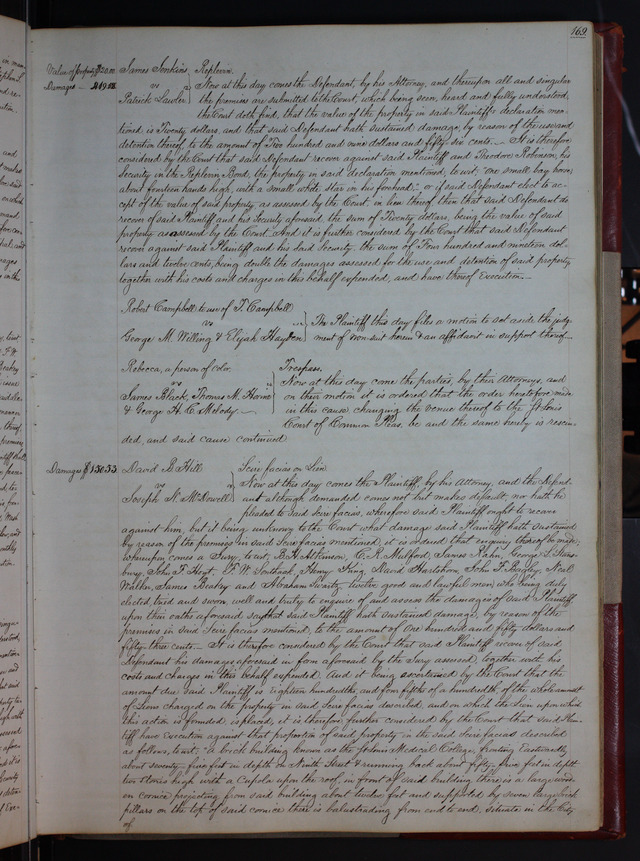 169
Value of property $20.00 James Jenkins Replevin.
Damages vs Now at this day comes the Defendant, by his Attorney, and thereupon all and singular
Patrick Lawler the premises are submitted to the Court, which being seen, heard and fully understood,
the Court doth find, that the value of the property in said Plaintiff's declaration men-
tioned, is Twenty dollars, and that said Defendant hath sustained damage, by reason of the use and
detention thereof to the amount of Two hundred and nine dollars and fifty six cents. It is therefore
considered by the Court that said Defendant recover against said Plaintiff and Theodore Robinson, his
Security in the Replevin Bond, the property in said declaration mentioned, to wit; one small bay horse
about fourteen hands high, with a small white star in his forehead; or if said Defendant elect to ac-
cept of the value of said property, as assessed by the Court, in lieu thereof then that said Defendant do
recover of said Plaintiff and his Security aforesaid, the sum of Twenty dollars, being the value of said
property as assessed by the Court. And it is further considered by the Court that said Defendant
recover against said Plaintiff and his said Security the sum of Four hundred and nineteen dol-
lars and twelve cents, being double the damages assessed for the use and detention of said property
together with his costs and charges in this behalf expended, and have thereof Execution.
Robert Campbell to use of T. Campbell
vs The Plaintiff this day files a motion to set aside the judg-
George M. Willing & Elijah Hayden ment of non-suit herein & an affidavit in support thereof.
Rebecca, a person of color. Trespass.
vs Now at this day come the parties, by their Attorneys, and
James Black, Thomas M. on their motion it is ordered that the order heretofore made
& George H. C. Melody in this cause changing the venue thereof to the St. Louis
Court of Common Pleas, be and the same hereby is rescin-
ded, and said cause continued.
Damages $150.53 David B. Hill Scire facias on Lien
vs Now at this day comes the Plaintiff, by his Attorney, and the Defend-
Joseph N. McDowell ant although demanded comes not but makes default, nor hath he
pleaded to said Scire facias, wherefore said Plaintiff ought to recover
against him, but it being unknown to the Court what damage said Plaintiff hath sustained
by reason of the premises in said Scire facias mentioned, it is ordered that enquiry thereof be made,
whereupon comes a Jury, to wit, C. R. Mulford, James George
John F. Hoyt, F. W. Southack, Henry King, David Hartshorn, John F. Neal
James and Abraham twelve good and lawful men, who being duly
elected, tried and sworn, well and truly to enquire of and assess the damages of said Plaintiff
upon their oaths aforesaid say that said Plaintiff hath sustained damage, by reason of the
premises in said Scire facias mentioned, to the amount of One hundred and fifty dollars and
fifty three cents. It is therefore considered by the Court that said Plaintiff recover of said
Defendant his damages aforesaid in form aforesaid by the Jury assessed, together with his
costs and charges in this behalf expended. And it being ascertained by the Court that the
amount due said Plaintiff is eighteen hundredths and four fifths of a hundredth of the whole amount
of Liens charged on the property in said Scire facias described, and on which the Lien upon which
this action is founded, is placed, it is therefore further considered by the Court that said Plain-
tiff have execution against that proportion of said property in the said Scire facias described
as follows, to wit; "a brick building known as the St. Louis Medical College, fronting Eastwardly
about seventy five feet in depth on Ninth Street & running back about fifty three feet in depth
two stories high with a Cupola upon the roof, in front of said building there is a large wood-
en cornice projecting from said building about twelve feet and supported by seven large brick
pillars on the top of said cornice there is balustrading from end to end, situate in the City
of